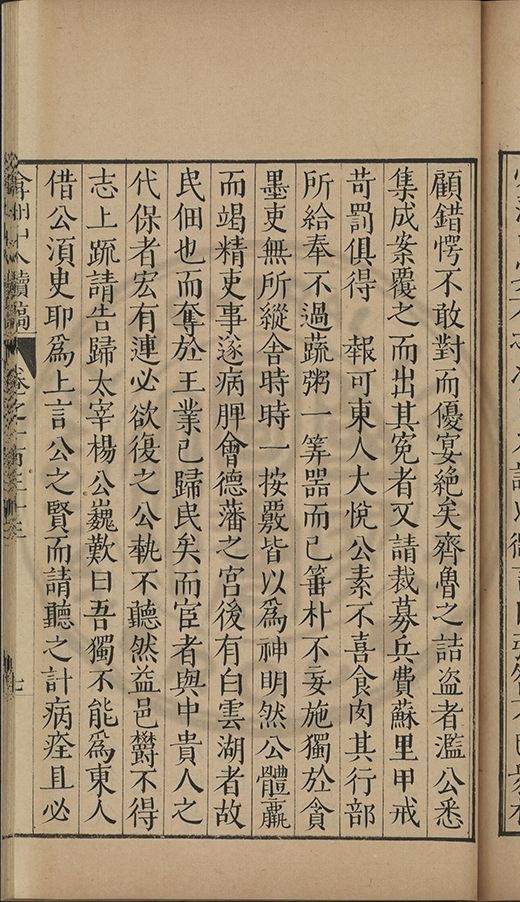 顧錯愕不敢對而優宴絶矣齊魯之詰盗者濫公悉
集成案覆之而出其寃者又請裁募兵費蘇里甲戒
苛罰俱得　報可東人大悅公素不喜食肉其行部
所給奉不過蔬粥一筭器而已箠朴不妄施獨於貪
墨吏無所縱舍時時一按覈皆以爲神明然公體羸
而竭精吏事遂病脾會德藩之宮後有白雲湖者故
民佃也而奪於王業已歸民矣而宦者與中貴人之
代保者宏有連必欲復之公執不聽然益邑欝不得
志上疏請告歸太宰楊公巍歎曰吾獨不能爲東人
借公須臾耶爲上言公之賢而請聽之計病痊且必
弇州山人續稿
卷之一百三十三
七